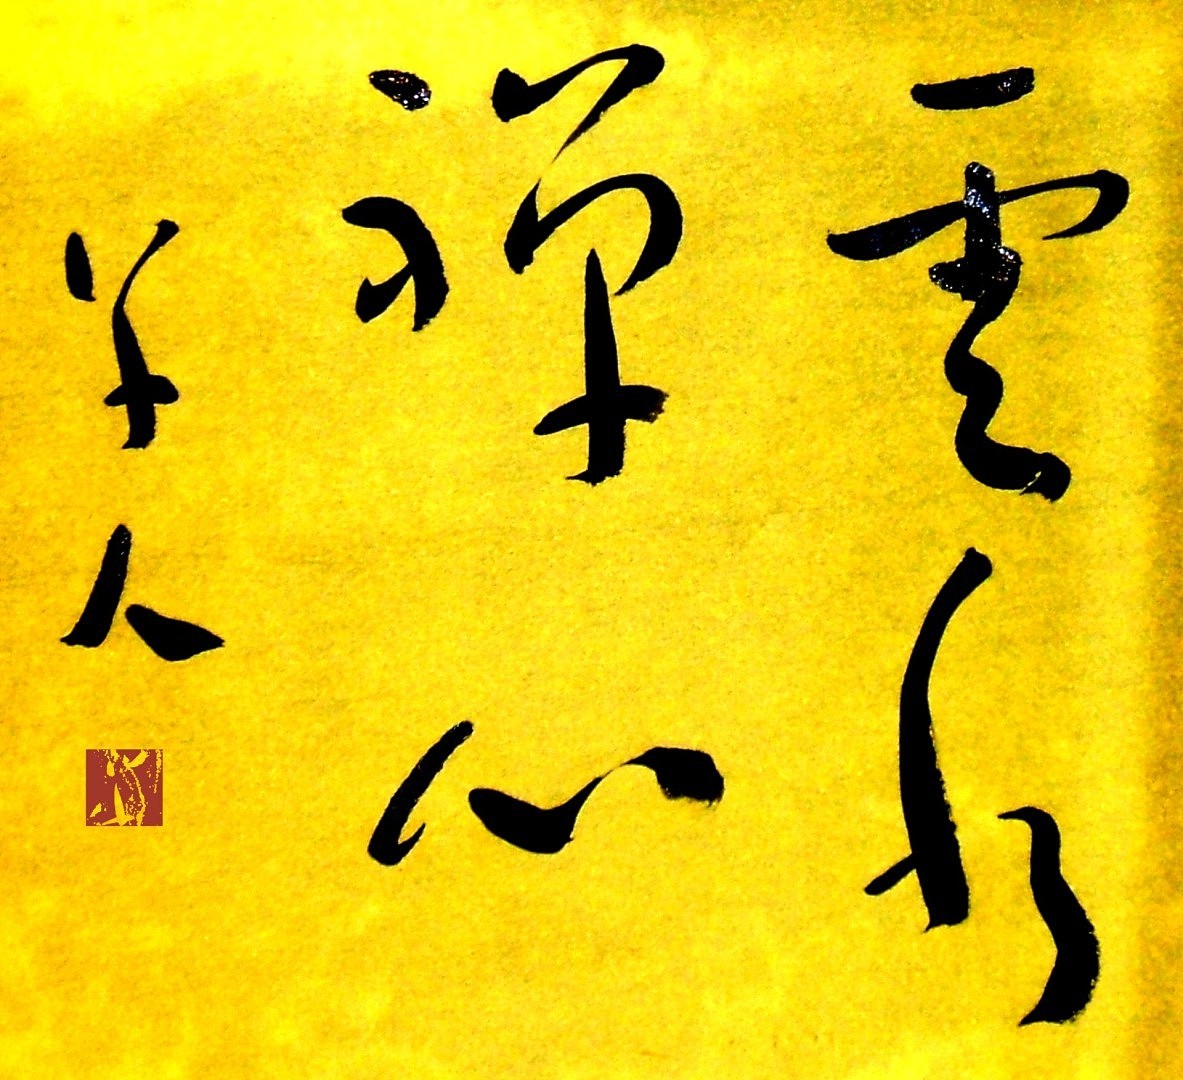 雲水
禪心
人